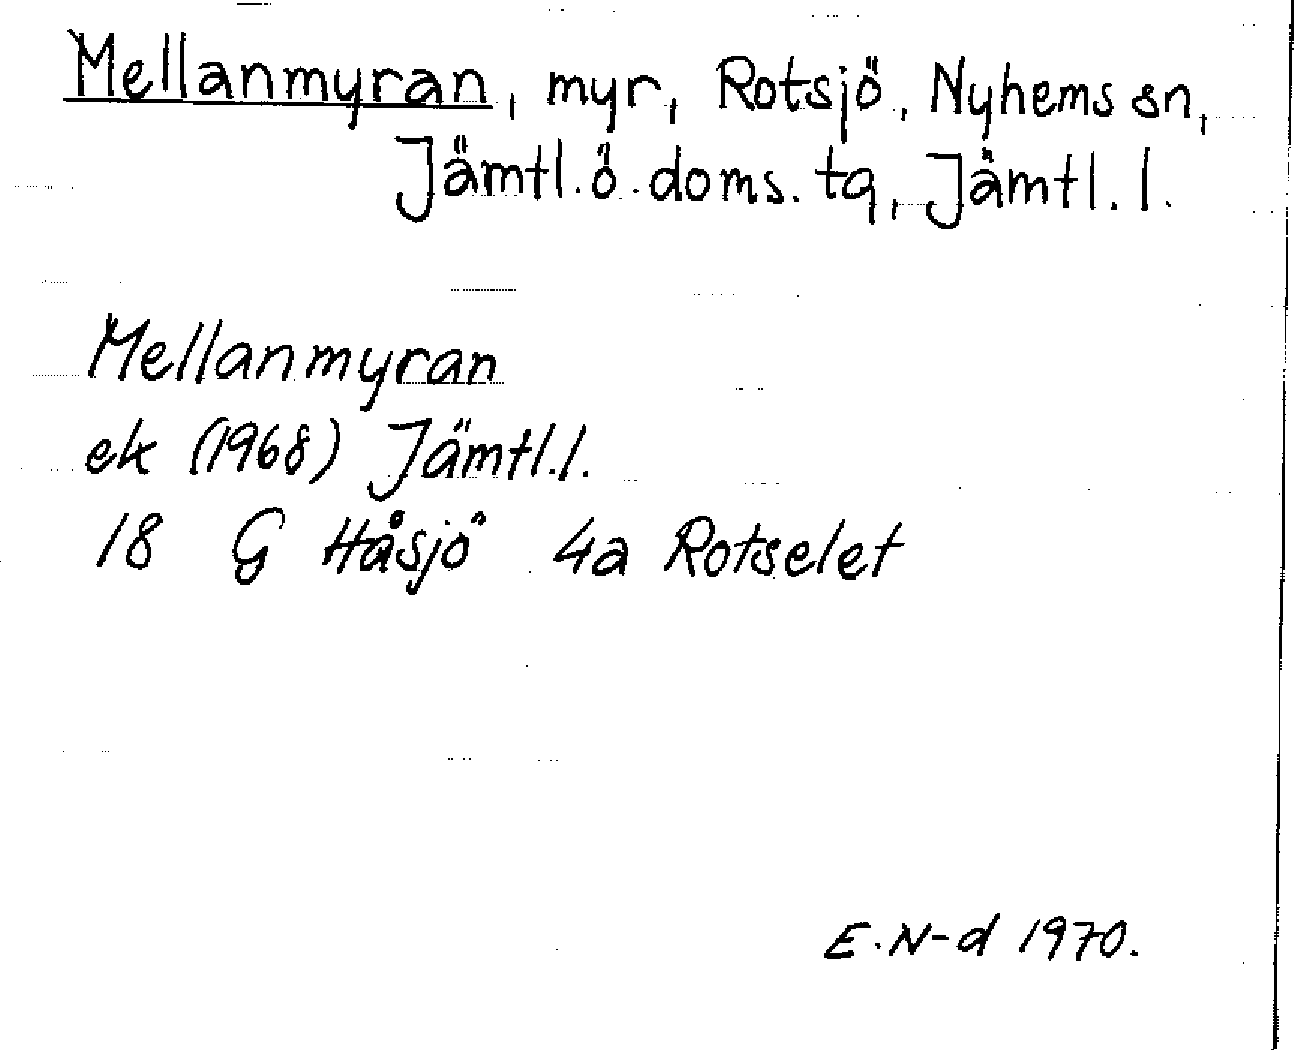 Mellanmyran, myr, Rotsjö, Nyhems sn,
Jämtl. ö. doms. tq, Jämtl. l.
Mellanmyran
ek (1968) Jämtl.l.
18 G Håsjö 4a Rotselet
E.N-d 1970.